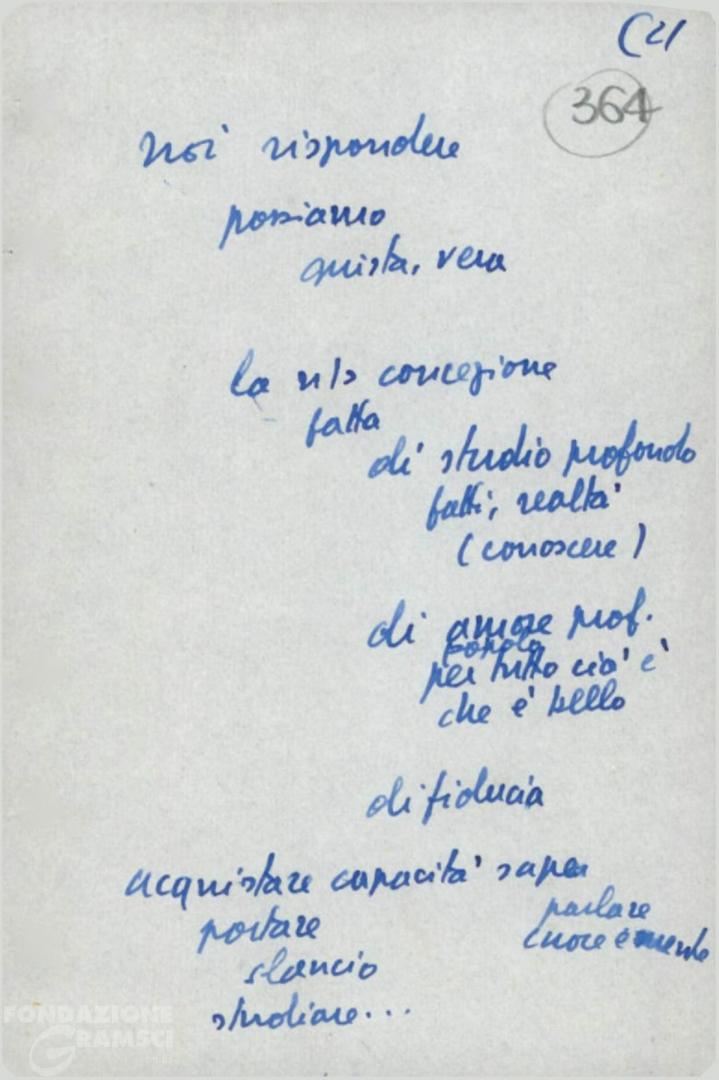 (21
364
noi rispondere
possiamo
giusta, vera
la n/s concezione
fatta
di studio profondo
fatti, realtà
(conoscere)
di amore prof.
popolo
per tutto ciò è
che è bello
di fiducia
acquistare capacità saper
portare parlare
slancio cuore e mente
studiare...
FONDAZIONE
GRAMSCI